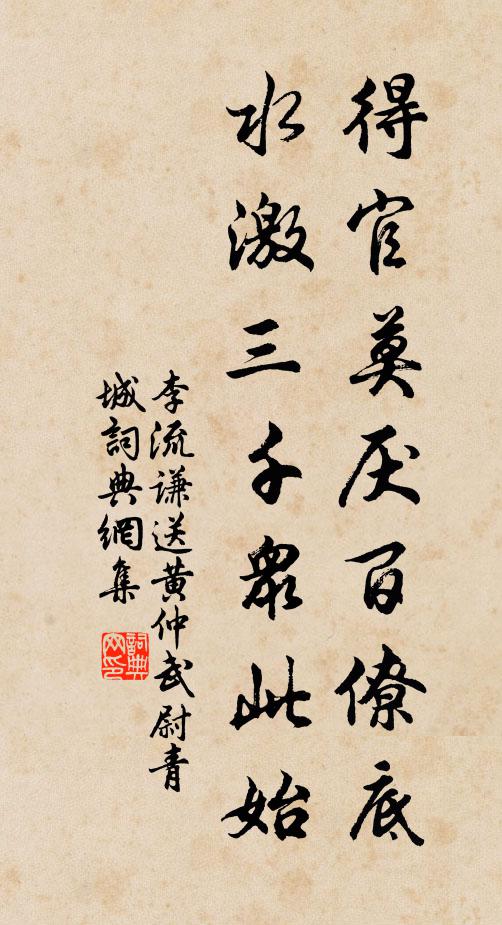 得官莫厌百僚底
水激三千众此始
李流谦送黄仲武尉青
城词典網集
詞典
网印